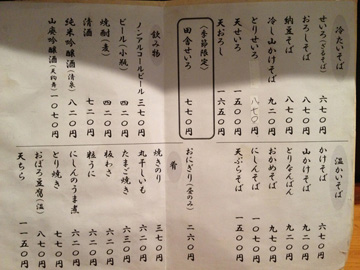 冷たいそば
せいろ(ざるそば) 六七〇円
おろしそば 八七〇円
納豆そば 八七〇円
冷し山かけそば 九二〇円
とりせいろ 八七〇円
天せいろ 一五〇〇円
天おろし 一六五〇円
(季節限定)
田舎せいろ 七七〇円
飲み物
ノンアルコールビール 三七〇円
ビール(小瓶) 四二〇円
焼酎(麦) 四二〇円
清酒 七二〇円
純米吟醸酒(清泉) 八二〇円
山廃吟醸酒(天狗舞) 一〇七〇円
温かいそば
かけそば 六七〇円
山かけそば 九二〇円
とりなんばん 九二〇円
おかめそば 九七〇円
にしんそば 一〇七〇円
天ぷらそば 一五〇〇円
おにぎり(昼のみ) 二六〇円
肴
焼きのり 三七〇円
丸干しいも 六二〇円
たまご焼き 六三〇円
板わさ 六二〇円
粒うに 六二〇円
にしんのうま煮 六二〇円
とり焼き 八七〇円
おぼろ豆腐(温) 八七〇円
天ちら 一一五〇円